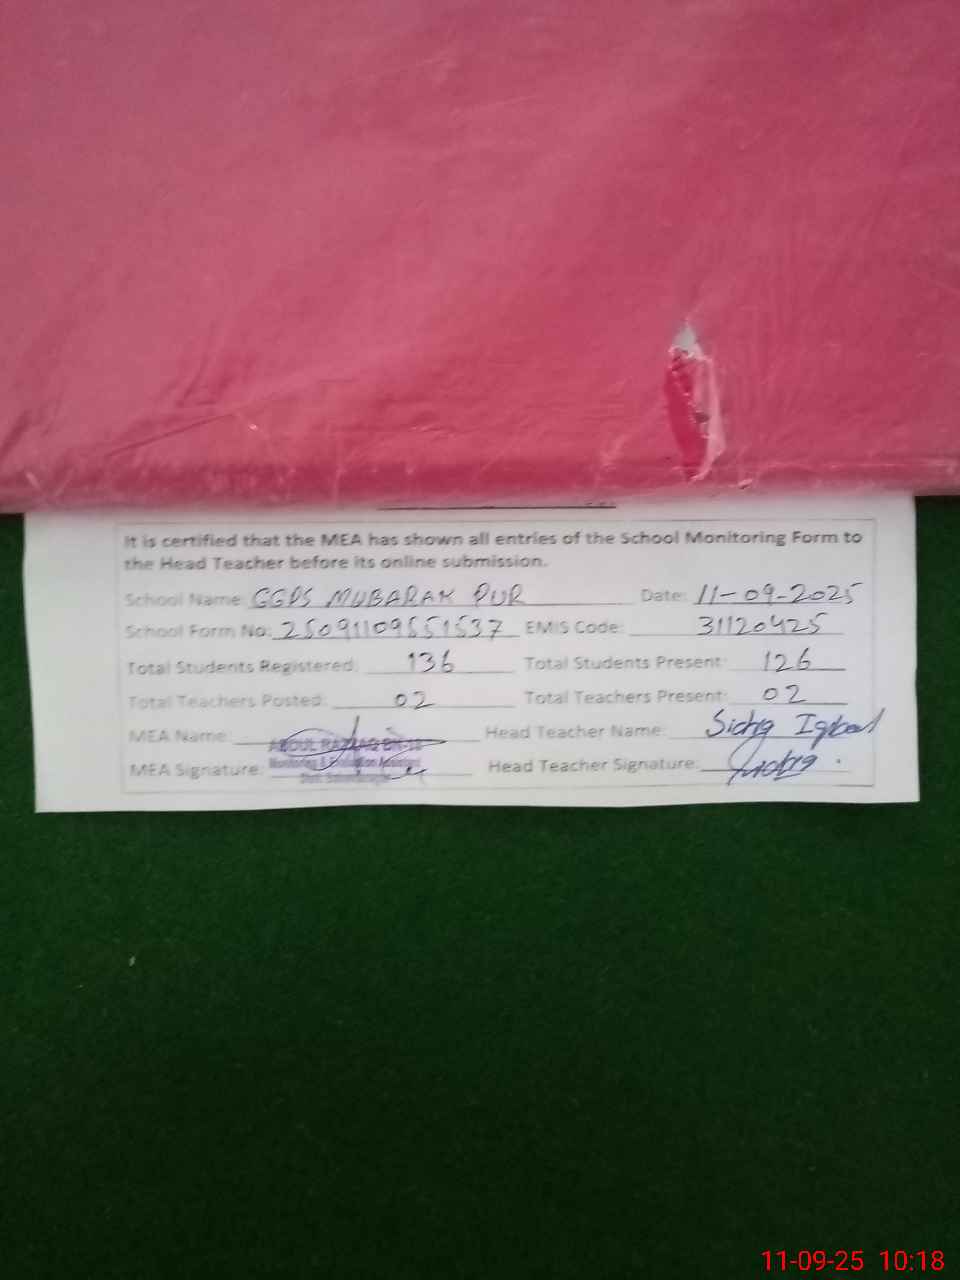 It is certified that the MEA has shown all entries of the School Monitoring Form to
the Head Teacher before its online submission.
School Name: GGPS MUBARAK PUR Date: 11-09-2025
School Form No: 25091109551537 EMIS Code: 31120425
Total Students Registered: 136 Total Students Present: 126
Total Teachers Posted: 02 Total Teachers Present: 02
MEA Name: ABDUL RAZZAQ Head Teacher Name: Sidrg Iqbal
MEA Signature: Monitoring & Evaluation Assistant Head Teacher Signature:
11-09-25 10:18